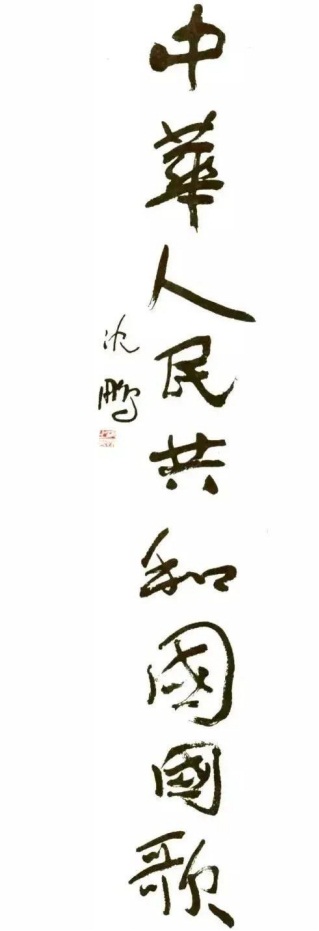 中華人民共和國國歌
沈鹏